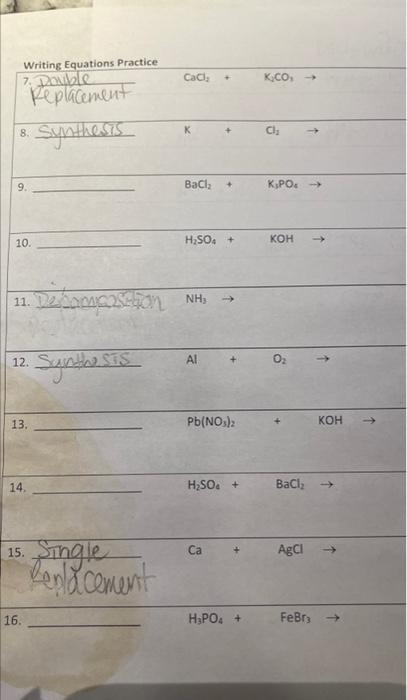 Writing Equations Practice
7. Double CaCl₂ + K₂CO₃ →
Replacement
8. Synthesis K + Cl₂ →
9. BaCl₂ + K₃PO₄ →
10. H₂SO₄ + KOH →
11. Decomposition NH₃ →
12. Synthesis Al + O₂ →
13. Pb(NO₃)₂ + KOH →
14. H₂SO₄ + BaCl₂ →
15. Single Ca + AgCl →
Replacement
16. H₃PO₄ + FeBr₃ →